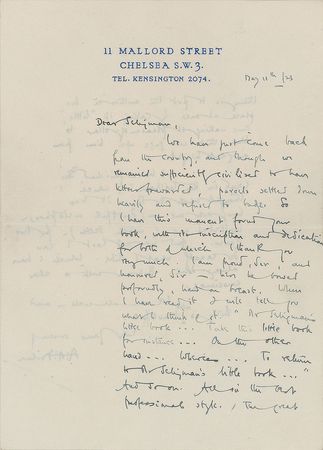 11 MALLORD STREET
CHELSEA S.W.3.
TEL. KENSINGTON 2074.
May 11th /23
Dear Seligman,
We have just come back
from the country, and though we
remained sufficiently civilised to have
letters forwarded, parcels settled down
heavily and refused to budge. So
I have this moment found your
book, with its inscription and dedication
for both of which I thank you
very much. I am proud, sir, and
honoured, sir - here he bowed
profoundly, hand on breast. When
I have read it I will tell you
what I think of it. "Mr Seligman's
little book ... Take this little book
for instance ... On the other
hand ... Whereas ... To return
to Mr Seligman's little book ..."
And so on. All in the best
professional style. The great